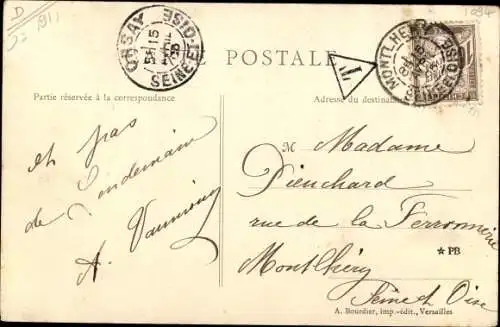 D
1911
1094
ORSAY
SEINE-ET-OISE
15
MONTLHERY
SEINE-ET-OISE
T
E POSTALE
Partie réservée à la correspondance
Adresse du destinataire
et pas
de lendemain
A.
M Madame
Pienchard
rue de la Ferronnerie
★PB
Montlhéry
Seine et Oise
A. Bourdier, imp.-édit., Versailles